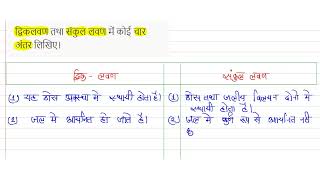 द्विकलवण तथा संकुल लवण में कोई चार
अंतर लिखिए।
द्विक - लवण
संकुल लवण
(1) यह ठोस अवस्था मे स्थायी होता है।
(1) ठोस तथा जलीय विलयन दोनो मे
स्थायी होता है।
(2) जल मे आयनित हो जाते है।
(2) जल मे पूर्ण रूप से आयनित नही
ह